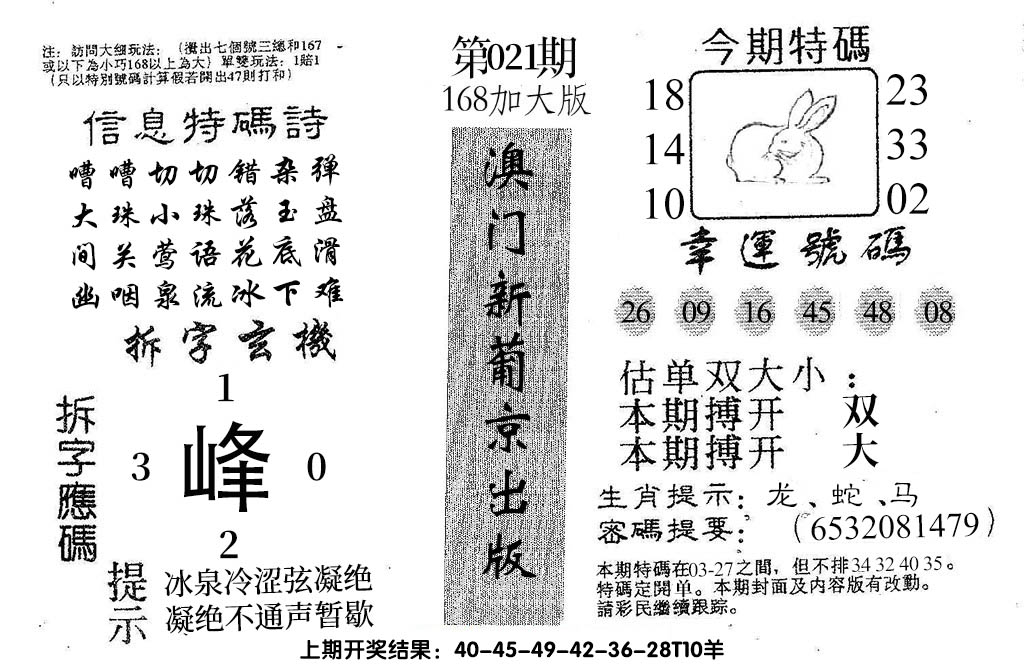 注：訪問大细玩法：（攪出七個號三總和167
或以下為小巧168以上為大）單雙玩法：1賠1
（只以特別號碼計算假若開出47則打和）
信息特碼詩
嘈嘈切切错杂弹
大珠小珠落玉盘
间关莺语花底滑
幽咽泉流冰下难
拆字玄機
拆字應碼
1
3 峰 0
2
提示
冰泉冷涩弦凝绝
凝绝不通声暂歇
第021期
168加大版
澳门新葡京出版
今期特碼
18 23
14 33
10 02
幸運號碼
26 09 16 45 48 08
估单双大小：
本期搏开 双
本期搏开 大
生肖提示：龙、蛇、马
密碼提要：（6532081479）
本期特碼在03-27之間，但不排34 32 40 35。
特碼定開单。本期封面及内容版有改動。
請彩民繼續跟踪。
上期开奖结果：40-45-49-42-36-28T10羊